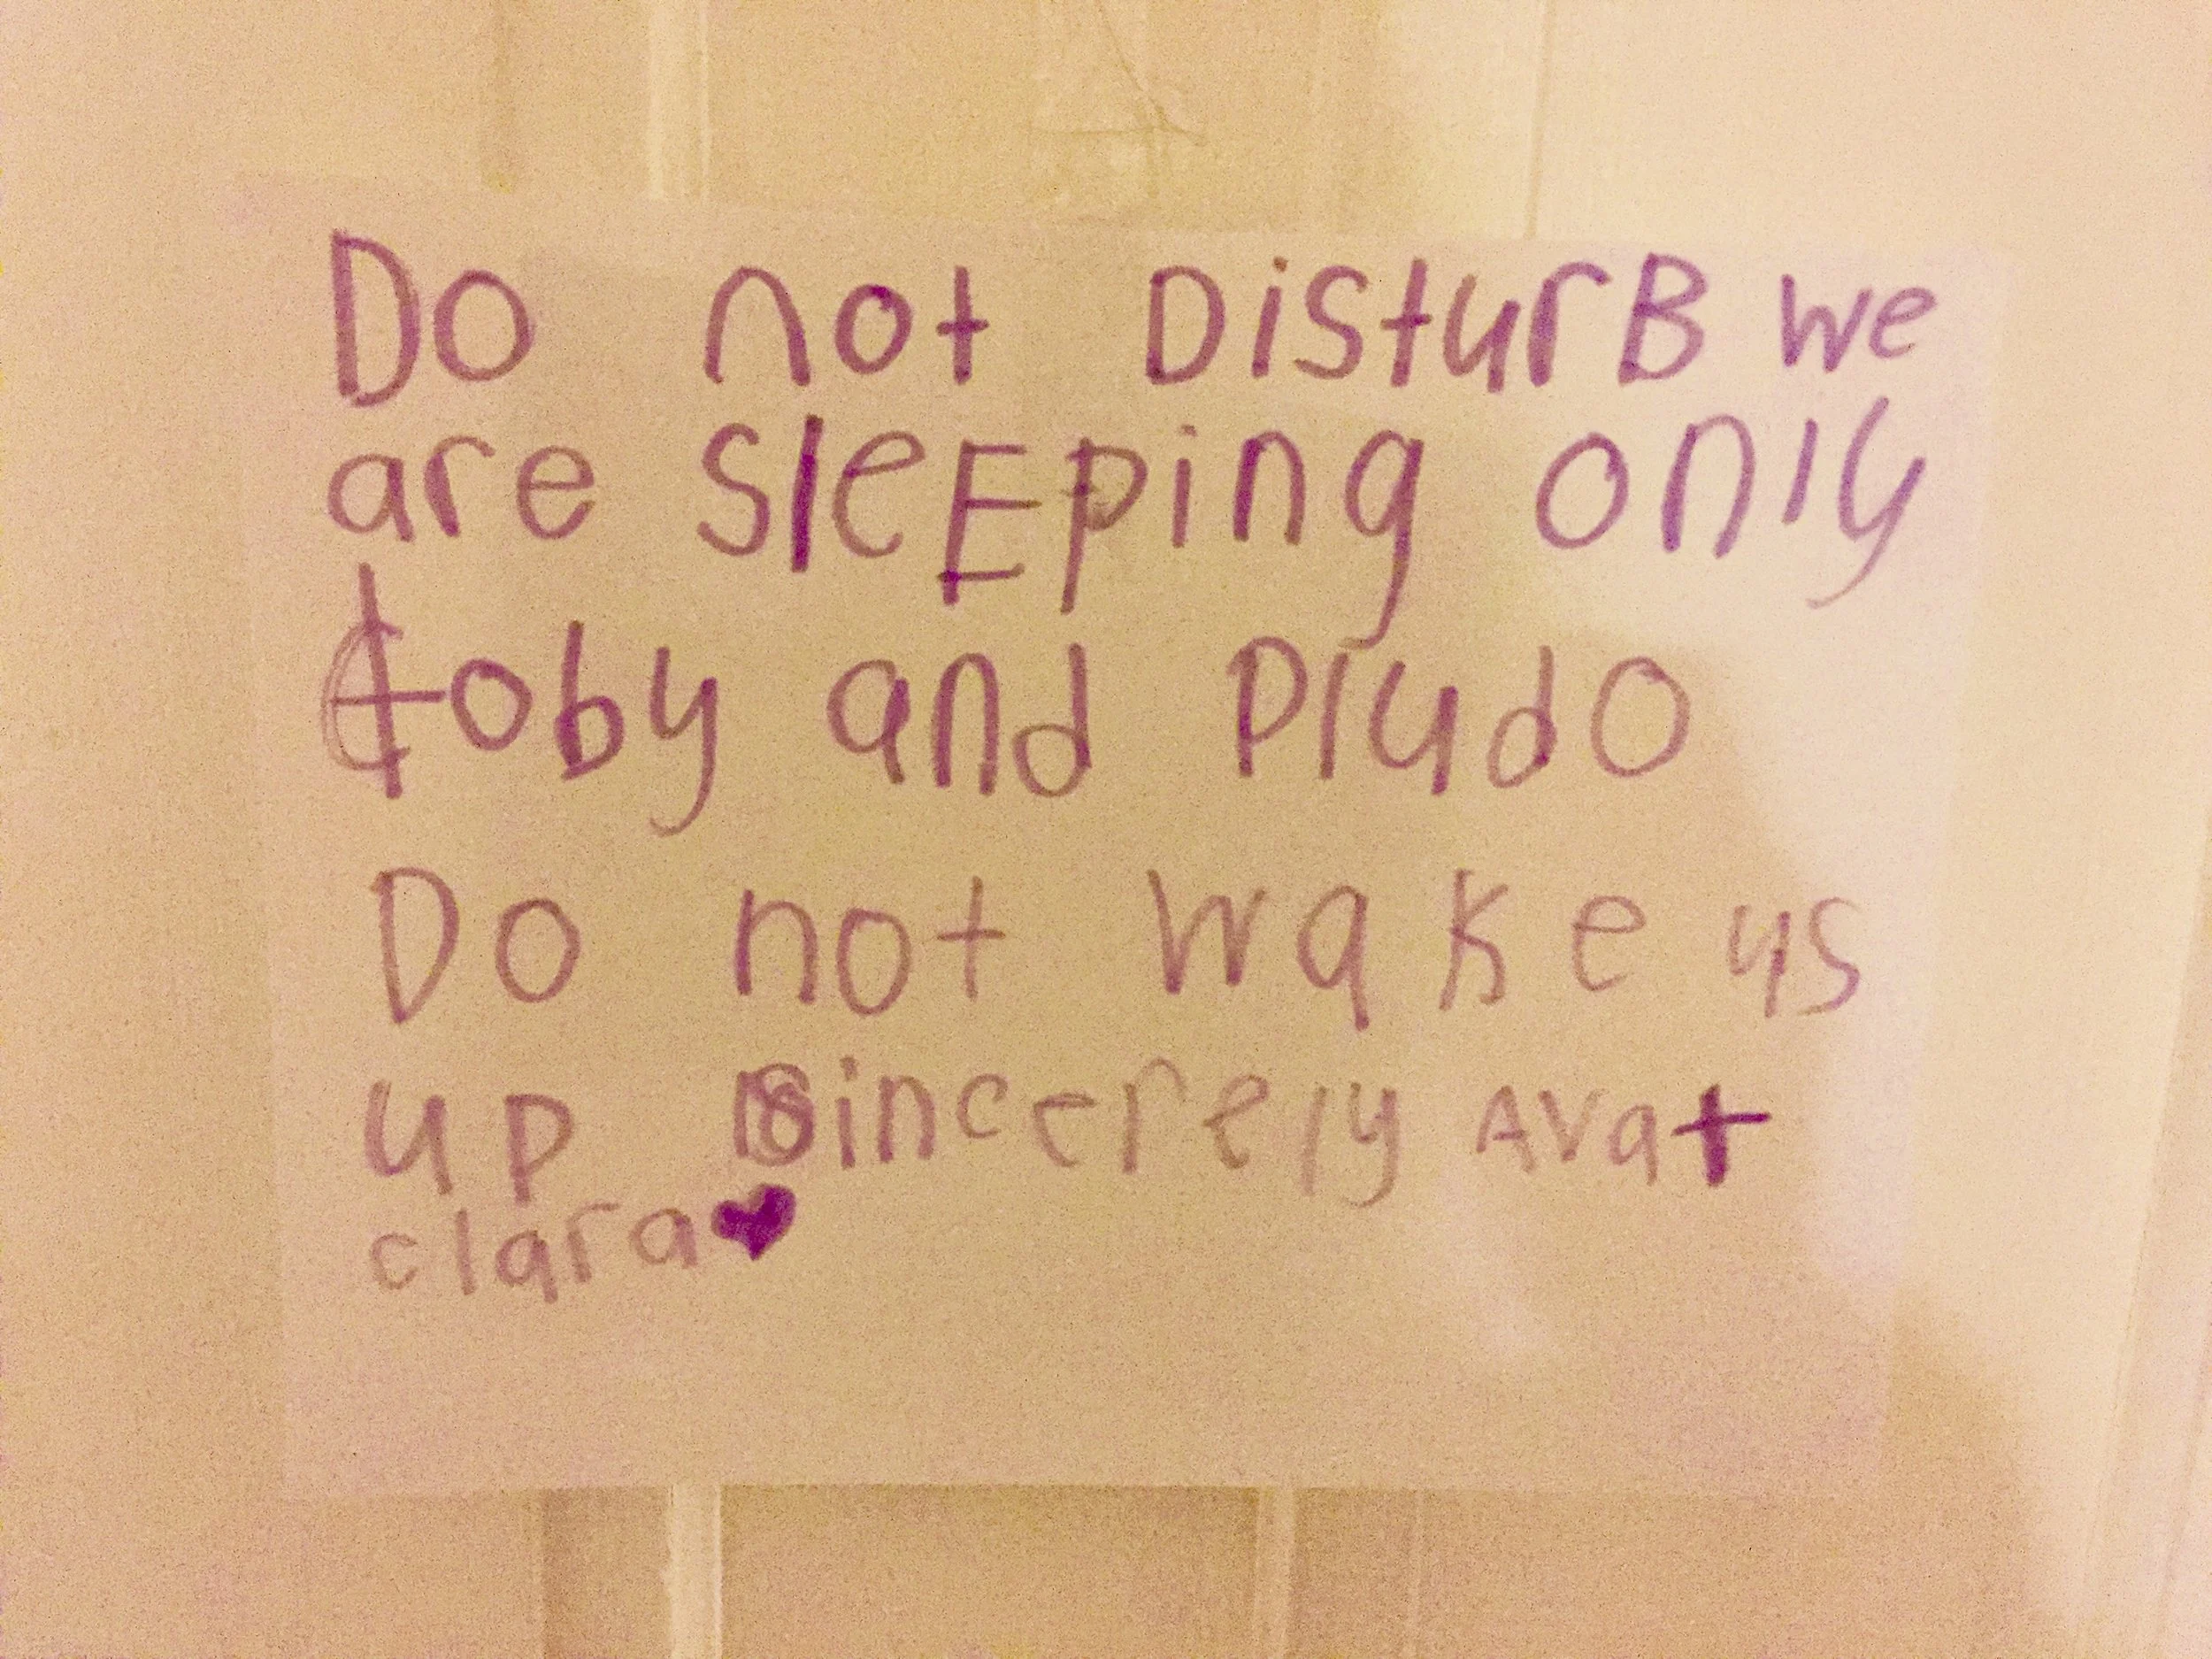 Do not DisturB we
are SleEping only
toby and Pludo
Do not wake us
up Sincerely Ava +
clara♥